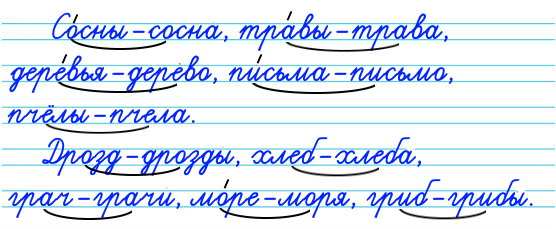 Со́сны – сосна, тра́вы – трава,
дере́вья – дерево, пи́сьма – письмо,
пчёлы – пчела.
Дрозд – дрозды, хлеб – хлеба,
грач – грачи, мо́ре – моря, гриб – грибы.